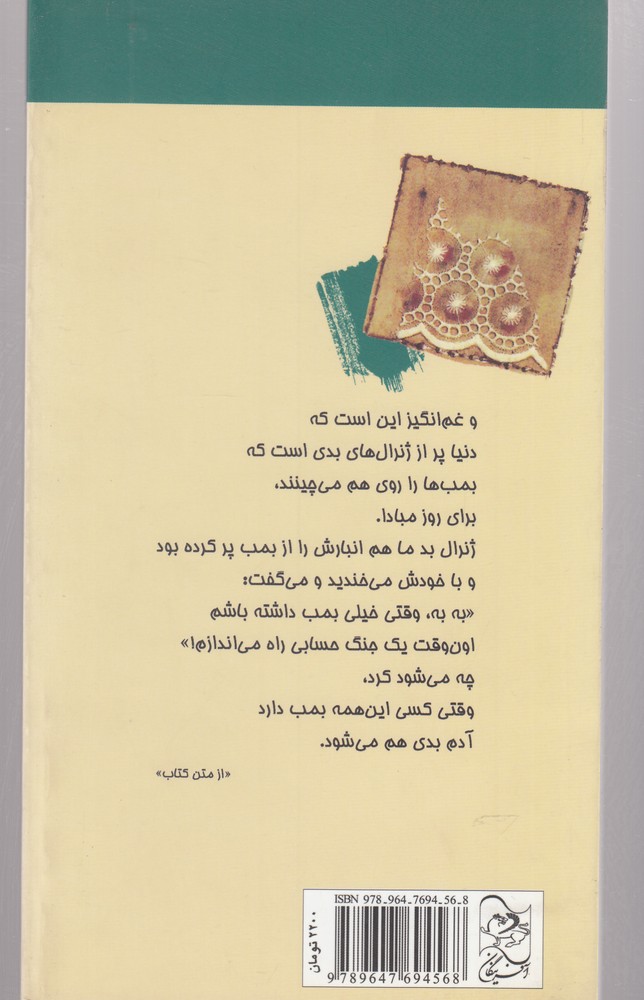 و غم‌انگیز این است که
دنیا پر از ژنرال‌های بدی است که
بمب‌ها را روی هم می‌چینند،
برای روز مبادا.
ژنرال بد ما هم انبارش را از بمب پر کرده بود
و با خودش می‌خندید و می‌گفت:
«به به، وقتی خیلی بمب داشته باشم
اون‌وقت یک جنگ حسابی راه می‌اندازم!»
چه می‌شود کرد،
وقتی کسی این‌همه بمب دارد
آدم بدی هم می‌شود.
«از متن کتاب»
ISBN 978-964-7694-56-8
9 789647 694568
۲۲۰۰ تومان
آفرینگان